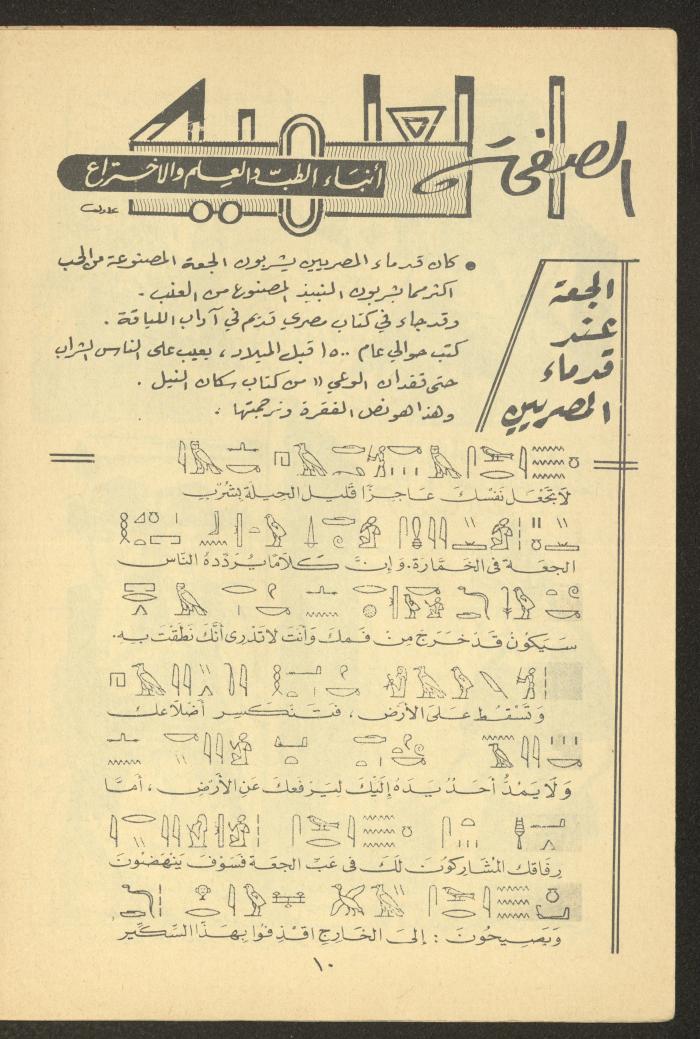 الصفحة العلمية
أنباء الطب والعلم والاختراع
الجعة
عند
قدماء
المصريين
● كان قدماء المصريين يشربون الجعة المصنوعة من الحب
اكثر مما يشربون النبيذ المصنوع من العنب .
وقد جاء في كتاب مصري قديم في آداب اللياقة .
كتب حوالي عام ١٥٠٠ قبل الميلاد ، يعيب على الناس الشراب
حتى فقدان الوعي (( من كتاب سكان النيل .
وهذا هو نص الفقرة وترجمتها :
لَا تَجْعَل نَفْسَكَ عَاجِزًا قَليل الحيلة بِشُرْبِ
الجعَة فى الخَمَّارَة . وَإِنَّ كَلَامًا يُرَدِّدهُ النَّاس
سَيَكُونُ قَدْ خَرَجَ مِنْ فَمِكَ وَأنتَ لَا تَدْرِى أنَّكَ نَطَقْتَ بِهِ .
وَتَسْقُط عَلَى الأَرْض ، فَتَنْكَسِر أضْلَاعك
وَلَا يَمُدُّ أحَدٌ يَدَهُ إلَيْكَ لِيَرْفَعكَ عَنِ الأَرْضِ ، أمَّا
رِفَاقك المُشَارِكُونَ لَكَ فى عَبِّ الجعَة فَسَوْفَ يَنْهَضُونَ
وَيَصِيحُونَ : إلَى الخَارِجِ اقْذِفُوا بِهَذَا السِّكِّير
١٠